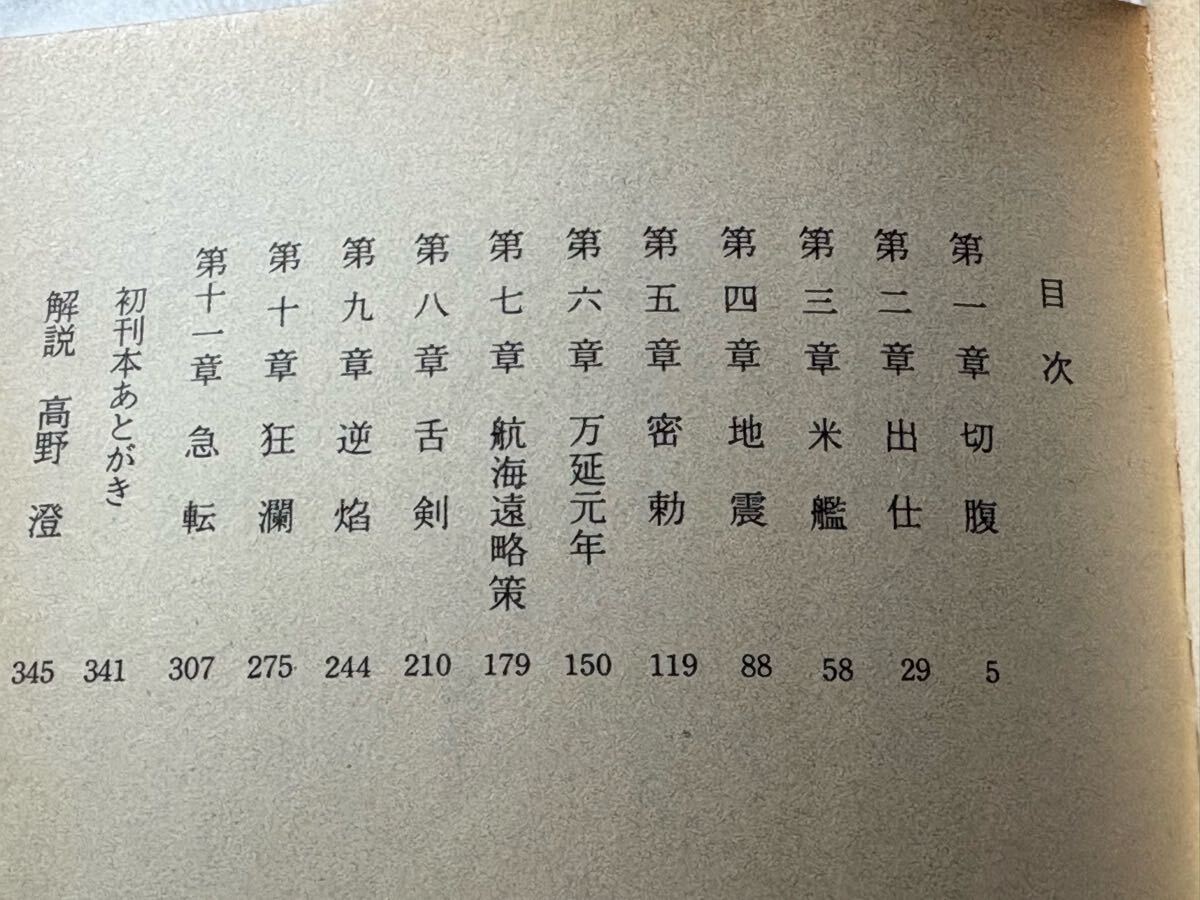 目次
第一章 切腹 5
第二章 出仕 29
第三章 米艦 58
第四章 地震 88
第五章 密勅 119
第六章 万延元年 150
第七章 航海遠略策 179
第八章 舌剣 210
第九章 逆焰 244
第十章 狂瀾 275
第十一章 急転 307
初刊本あとがき 341
解説 高野 澄 345